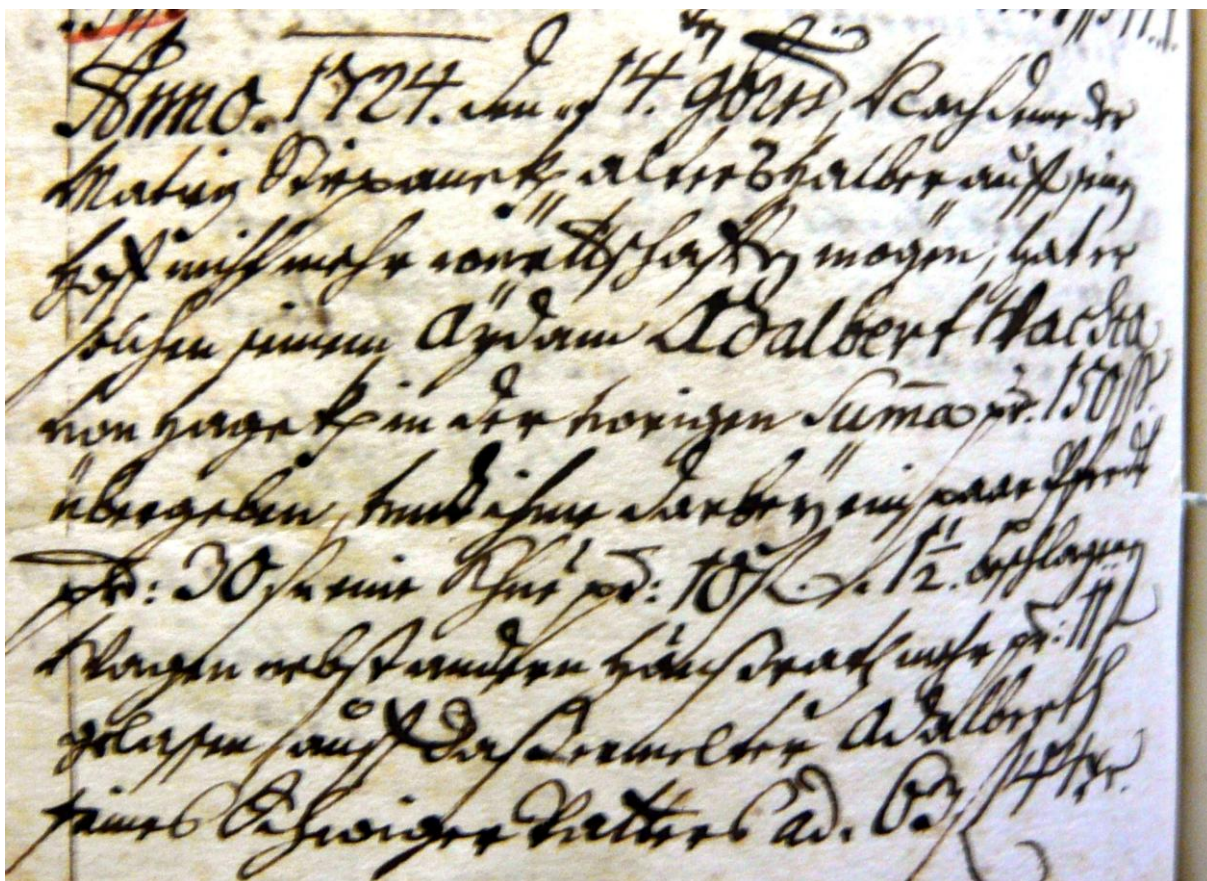 Anno. 1724. den 14. 9bris, Nachdeme der
Matieg Stiepanek, alters halber auff seinen
Hoff nicht mehr württschafften mögen, hat er
solchen seinem Aydam Adalbert Wachta
von Hagek in der vorigen Suma pr. 150 ß.
übergeben, undt ihme darbey ein paar Pferdt
pr: 30 ß eine Khue pr: 10 ß. 1 1/2. beschlagenen
Wagen nebst andern Haußrath mehr pr:
gelassen, auff daß ermelter Adalberth
seines Schwiger Vatters ad. 63 ß